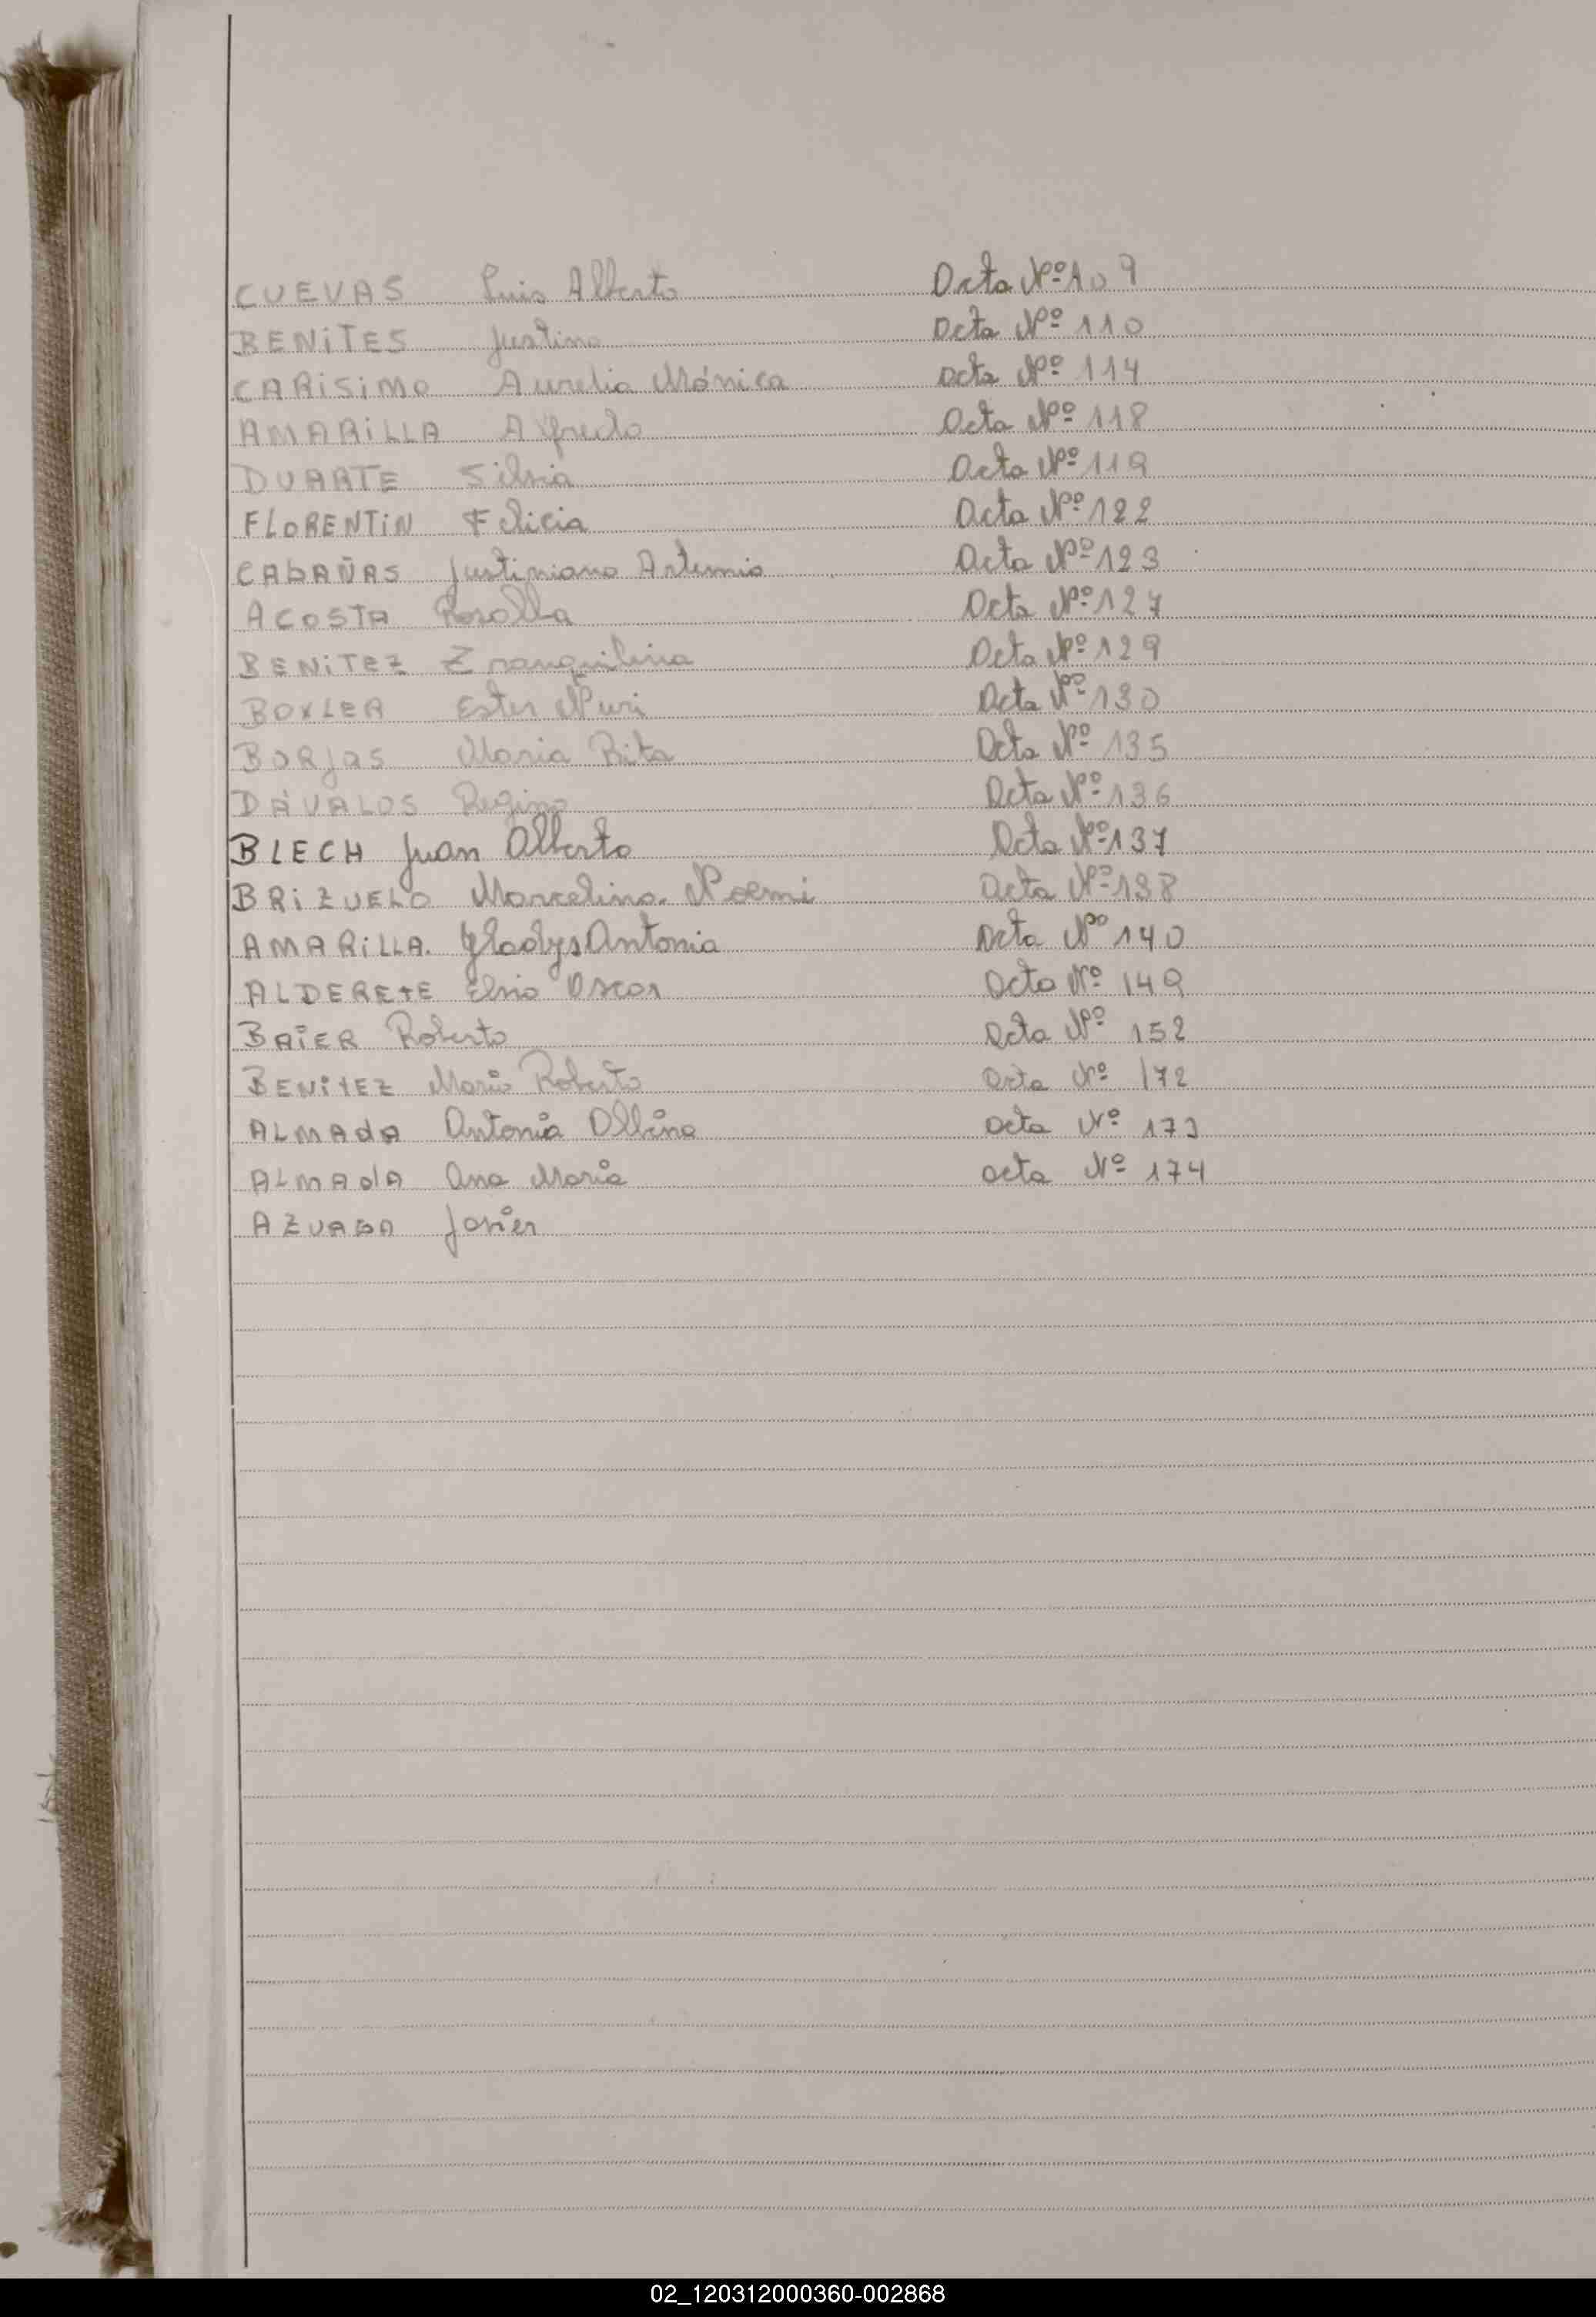 CUEVAS Luis Alberto Acta Nº 109
BENiTES Justino Acta Nº 110
CARiSiMO Aurelia Mónica Acta Nº 114
AMARiLLA Alfredo Acta Nº 118
DUARTE Silvia Acta Nº 119
FLORENTiN Felicia Acta Nº 122
CAbAÑAS Justiniano Artemio Acta Nº 123
ACOSTA Rosalba Acta Nº 127
BENiTEZ Tranquilina Acta Nº 129
BOXLER Ester Nuri Acta Nº 130
BORjas Maria Rita Acta Nº 135
DÁVALOS Regino Acta Nº 136
BLECH Juan Alberto Acta Nº 137
BRiZUELO Marcelina Noemi Acta Nº 138
AMARiLLA. Gladys Antonia Acta Nº 140
ALDERETE Elvio Oscar Acta Nº 149
BAiER Roberto Acta Nº 152
BENiTEZ Mario Roberto Acta Nº 172
ALMAdA Antonia Albina Acta Nº 173
ALMAdA Ana Maria Acta Nº 174
AZUAGA Javier
02_120312000360-002868